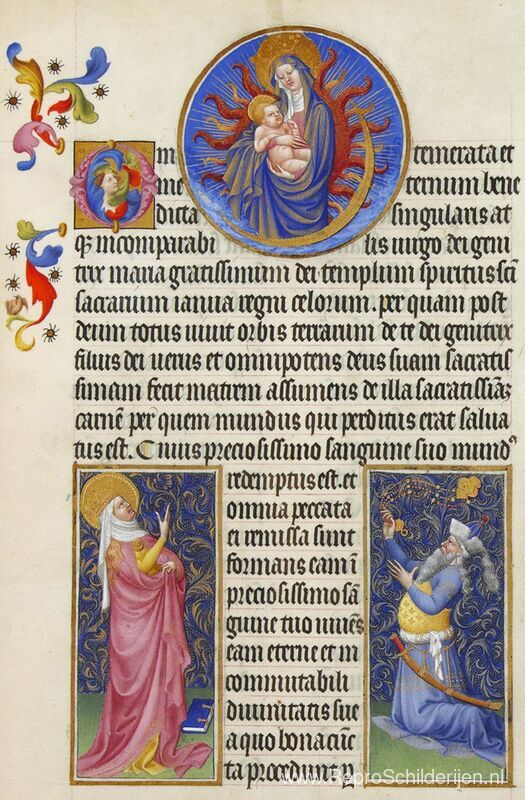 O in temerata et
ine ternum bene
dicta singularis at
qꝫ incomparabi lis uirgo dei geni
trix maria gratissimum dei templum spiritus sc̄i
sacrarium ianua regni celorum. per quam post
deum totus uiuit orbis terrarum de te dei genitrix
filius dei uerus et omnipotens deus suam sacratis
simam fecit matrem assumens de illa sacratissiāꝫ
carnē per quem mundus qui perditus erat salua
tus est. Cuius preciosissimo sanguine suo mundꝰ
redemptus est. et
omnia peccata
ei remissa sunt
formans eam ī
preciosissimo sā
guine tuo
eam eterne et in
commutabili
diuinitatis sue
a quo bona cūc
ta procedunt
www.ReproSchilderijen.nl